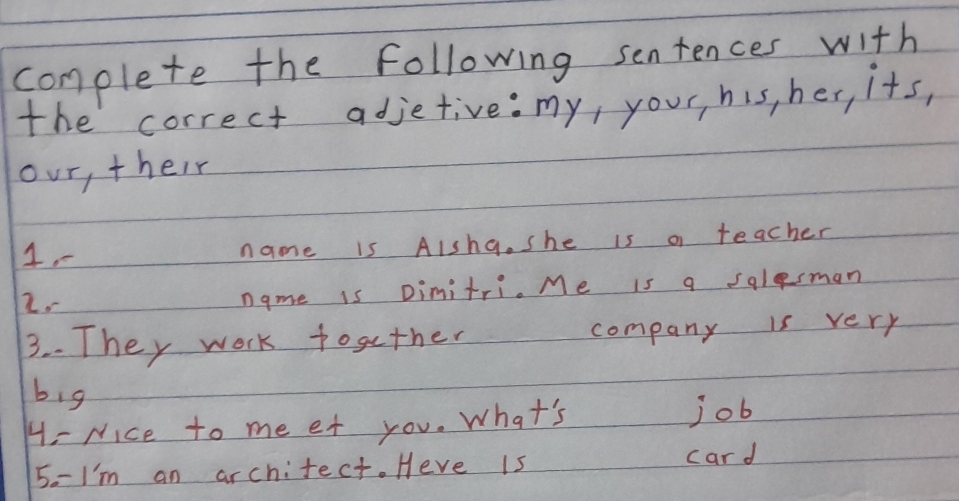 complete the following sentences with
the correct adjetive: my, your, his, her, its,
our, their
1.- name is Aisha. she is a teacher
2.- name is Dimitri. Me is a salesman
3.- They work together company is very
big
4.- Nice to meet you. What's job
5.- I'm an architect. Here is card